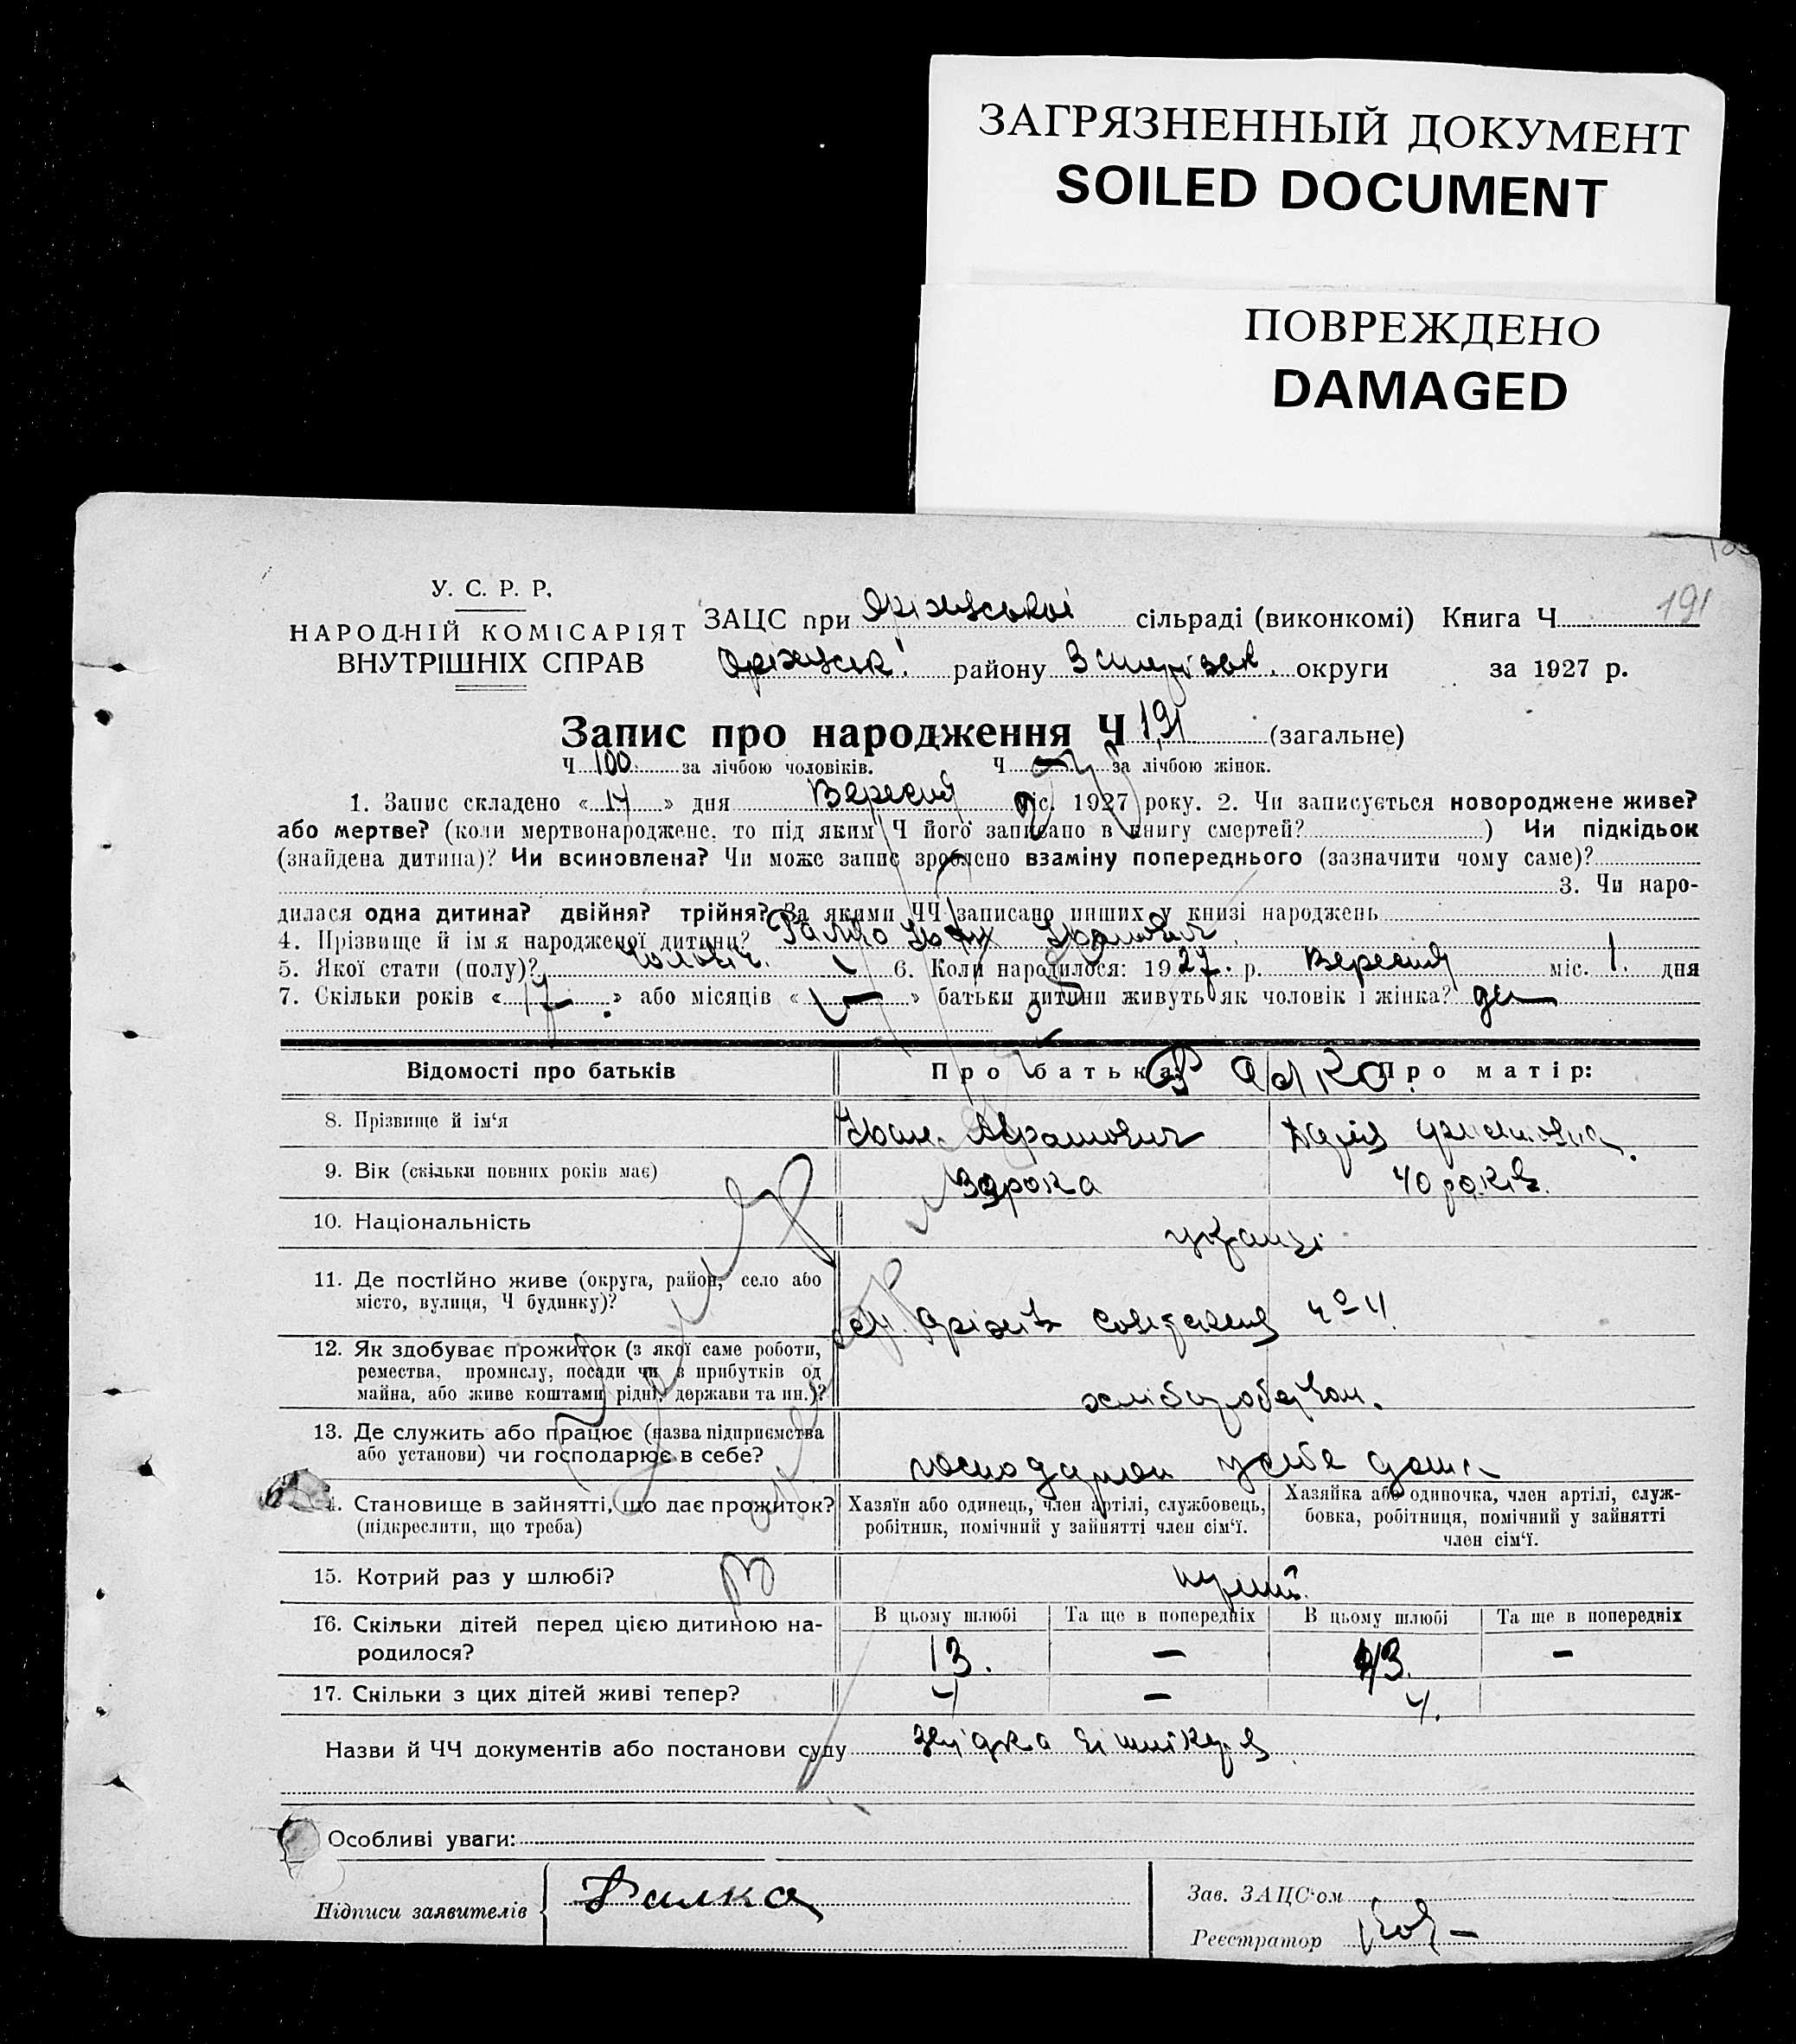 ЗАГРЯЗНЕННЫЙ ДОКУМЕНТ
SOILED DOCUMENT
ПОВРЕЖДЕНО
DAMAGED
У. С. Р. Р.
НАРОДНІЙ КОМІСАРІЯТ
ВНУТРІШНІХ СПРАВ
191
ЗАЦС при сільраді (виконкомі) Книга Ч
району округи за 1927 р.
Запис про народження Ч 191 (загальне)
Ч 100 за лічбою чоловіків. Ч — за лічбою жінок.
1. Запис складено « 14 » дня Вересня міс. 1927 року. 2. Чи записується новороджене живе?
або мертве? (коли мертвонароджене, то під яким Ч його записано в книгу смертей? ) Чи підкідьок
(знайдена дитина)? Чи всиновлена? Чи може запис зроблено взаміну попереднього (зазначити чому саме)?
3. Чи наро-
дилася одна дитина? двійня? трійня? За якими ЧЧ записано инших у книзі народжень
4. Прізвище й ім'я народженої дитини? Іван Іванович
5. Якої стати (полу)? чоловіч. 6. Коли народилося: 1927. р. Вересня міс. 1. дня
7. Скільки років « 17 » або місяців « — » батьки дитини живуть як чоловік і жінка? да
Відомості про батьків Про батька: Про матір:
8. Прізвище й ім'я Іван Абрамович Дарія
9. Вік (скільки повних років має) 39 рока 40 років.
10. Національність українці
11. Де постійно живе (округа, район, село або
місто, вулиця, Ч будинку)?
12. Як здобуває прожиток (з якої саме роботи,
ремества, промислу, посади чи з прибутків од
майна, або живе коштами рідні, держави та ин.)? хліборобством.
13. Де служить або працює (назва підприємства
або установи) чи господарює в себе? господарюю у себе дома
14. Становище в зайнятті, що дає прожиток?
(підкреслити, що треба)
Хазяїн або одинець, член артілі, службовець,
робітник, помічний у зайнятті член сім'ї.
Хазяйка або одиночка, член артілі, служ-
бовка, робітниця, помічний у зайнятті
член сім'ї.
15. Котрий раз у шлюбі? перший.
16. Скільки дітей перед цією дитиною на-
родилося?
В цьому шлюбі Та ще в попередніх В цьому шлюбі Та ще в попередніх
13. — 13. —
17. Скільки з цих дітей живі тепер? 4 — 4.
Назви й ЧЧ документів або постанови суду
Особливі уваги:
Підписи заявителів
Зав. ЗАЦС'ом
Реєстратор